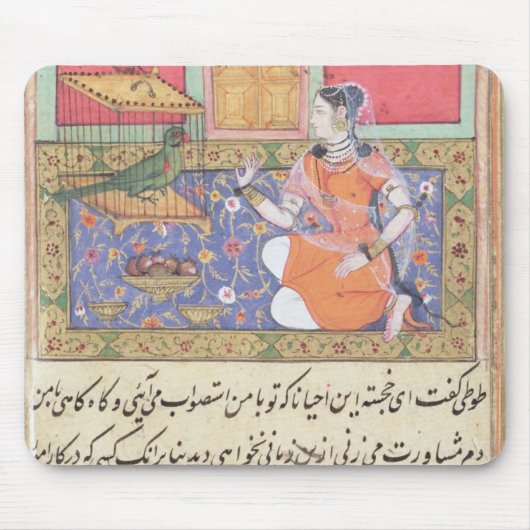 طوطی گفت ای خجسته این احیانا که تو با من استصواب می آیئی و گاه گاهی با من
دم مشاورت می زنی از من زیانی نخواهی دید بنا برانک کسی که در کارها